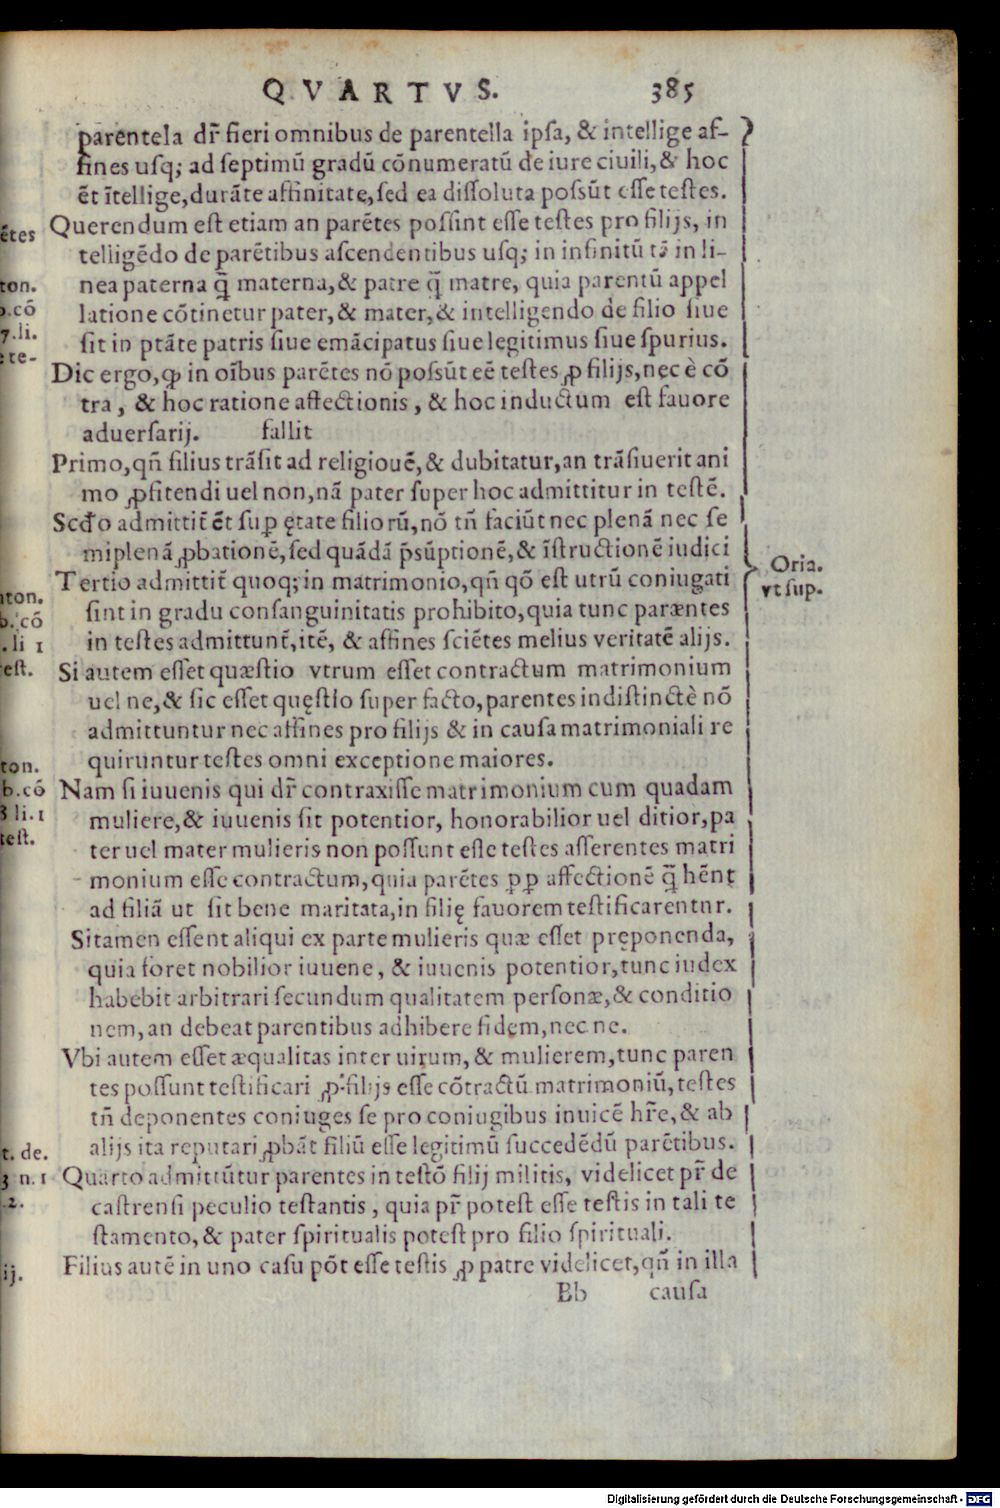 QVARTVS. 385
parentela dr̃ fieri omnibus de parentella ipſa, & intellige af-
fines uſq; ad ſeptimũ gradũ cõnumeratũ de iure ciuili, & hoc
ẽt ĩtellige, durãte affinitate, ſed ea diſſoluta poſsũt eſſe teſtes.
Querendum eſt etiam an parẽtes poſſint eſſe teſtes pro filijs, in
telligẽdo de parẽtibus aſcendentibus uſq; in infinitũ tã in li-
nea paterna q̃ materna, & patre q̃ matre, quia parentũ appel
latione cõtinetur pater, & mater, & intelligendo de filio ſiue
ſit in ptãte patris ſiue emãcipatus ſiue legitimus ſiue ſpurius.
Dic ergo, ꝙ in oĩbus parẽtes nõ poſsũt eẽ teſtes ꝓ filijs, nec è cõ
tra, & hoc ratione affectionis, & hoc inductum eſt fauore
aduerſarij. fallit
Primo, qñ filius trãſit ad religiouẽ, & dubitatur, an trãſiuerit ani
mo ꝓfitendi uel non, nã pater ſuper hoc admittitur in teſtẽ.
Scďo admittit̃ ẽt ſuꝑ ętate filiorũ, nõ tñ faciũt nec plenã nec ſe
miplenã ꝓbationẽ, ſed quãdã p̃ſũptionẽ, & ĩſtructionẽ iudici
Tertio admittit̃ quoq; in matrimonio, qñ qõ eſt utrũ coniugati
ſint in gradu conſanguinitatis prohibito, quia tunc paræntes
in teſtes admittunt̃, itẽ, & affines ſciẽtes melius veritatẽ alijs.
Si autem eſſet quæſtio vtrum eſſet contractum matrimonium
uel ne, & ſic eſſet quęſtio ſuper facto, parentes indiſtinctè nõ
admittuntur nec affines pro filijs & in cauſa matrimoniali re
quiruntur teſtes omni exceptione maiores.
Nam ſi iuuenis qui dr̃ contraxiſſe matrimonium cum quadam
muliere, & iuuenis ſit potentior, honorabilior uel ditior, pa
ter uel mater mulieris non poſſunt eſſe teſtes aſſerentes matri
monium eſſe contractum, quia parẽtes ꝓꝑ affectionẽ q̃ hẽnt
ad filiã ut ſit bene maritata, in filię fauorem teſtificarentur.
Si tamen eſſent aliqui ex parte mulieris quæ eſſet pręponenda,
quia foret nobilior iuuene, & iuuenis potentior, tunc iudex
habebit arbitrari ſecundum qualitatem perſonæ, & conditio
nem, an debeat parentibus adhibere fidem, nec ne.
Vbi autem eſſet æqualitas inter uirum, & mulierem, tunc paren
tes poſſunt teſtificari ꝓ filijs eſſe cõtractũ matrimoniũ, teſtes
tñ deponentes coniuges ſe pro coniugibus inuicẽ hr̃e, & ab
alijs ita reputari ꝓbãt filiũ eſſe legitimũ ſuccedẽdũ parẽtibus.
Quarto admittũtur parentes in teſtõ filij militis, videlicet pr̃ de
caſtrenſi peculio teſtantis, quia pr̃ poteſt eſſe teſtis in tali te
ſtamento, & pater ſpiritualis poteſt pro filio ſpirituali.
Filius autẽ in uno caſu põt eſſe teſtis ꝓ patre videlicet, qñ in illa
Bb cauſa
Oria.
vt ſup.
ẽtes
ton.
b.cõ
7.li.
ete-
nton.
b.cõ
.li 1
eſt.
ton.
b.cõ
8 li.1
teſt.
t. de.
3 n.1
.2.
ij.
Digitalisierung gefördert durch die Deutsche Forschungsgemeinschaft - DFG